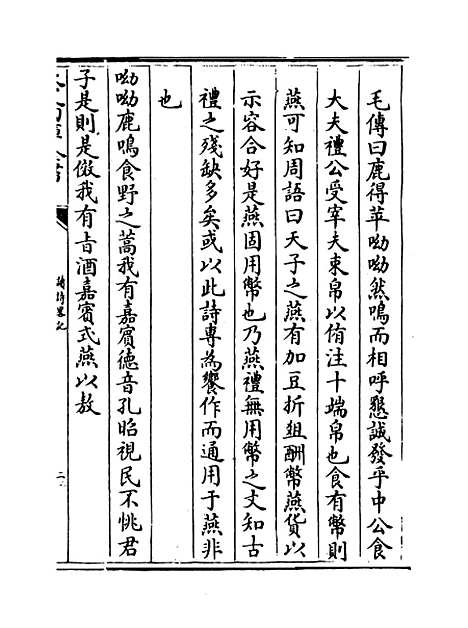 毛傳曰鹿得苹呦呦然鳴而相呼懇誠發乎中公食
大夫禮公受宰夫束帛以侑注十端帛也食有幣則
燕可知周語曰天子之燕有加豆折俎酬幣燕貨以
示容合好是燕固用幣也乃燕禮無用幣之文知古
禮之殘缺多矣或以此詩專為饗作而通用于燕非
也
呦呦鹿鳴食野之蒿我有嘉賓德音孔昭視民不恌君
子是則是傚我有旨酒嘉賓式燕以敖
讀詩畧記